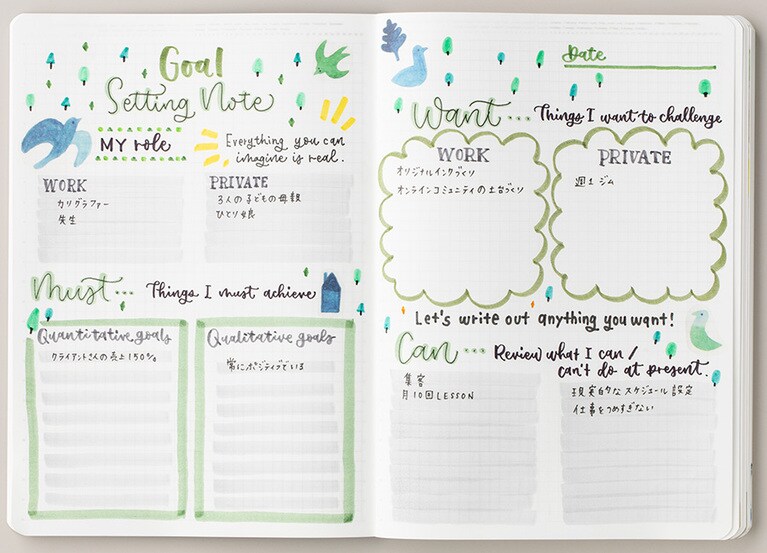 Goal
Setting Note
MY role
Everything you can
imagine is real.
WORK
カリグラファー
先生
PRIVATE
3人の子どもの母親
ひとり娘
Must... Things I must achieve
Quantitative goals
クライアントさんの売上150%
Qualitative goals
常にポジティブでいる
Date
Want... Things I want to challenge
WORK
オリジナルインクづくり
オンラインコミュニティの土台づくり
PRIVATE
週1ジム
Let's write out anything you want!
Can... Review what I can /
can't do at present.
集客
月10回LESSON
現実的なスケジュール設定
仕事をつめすぎない